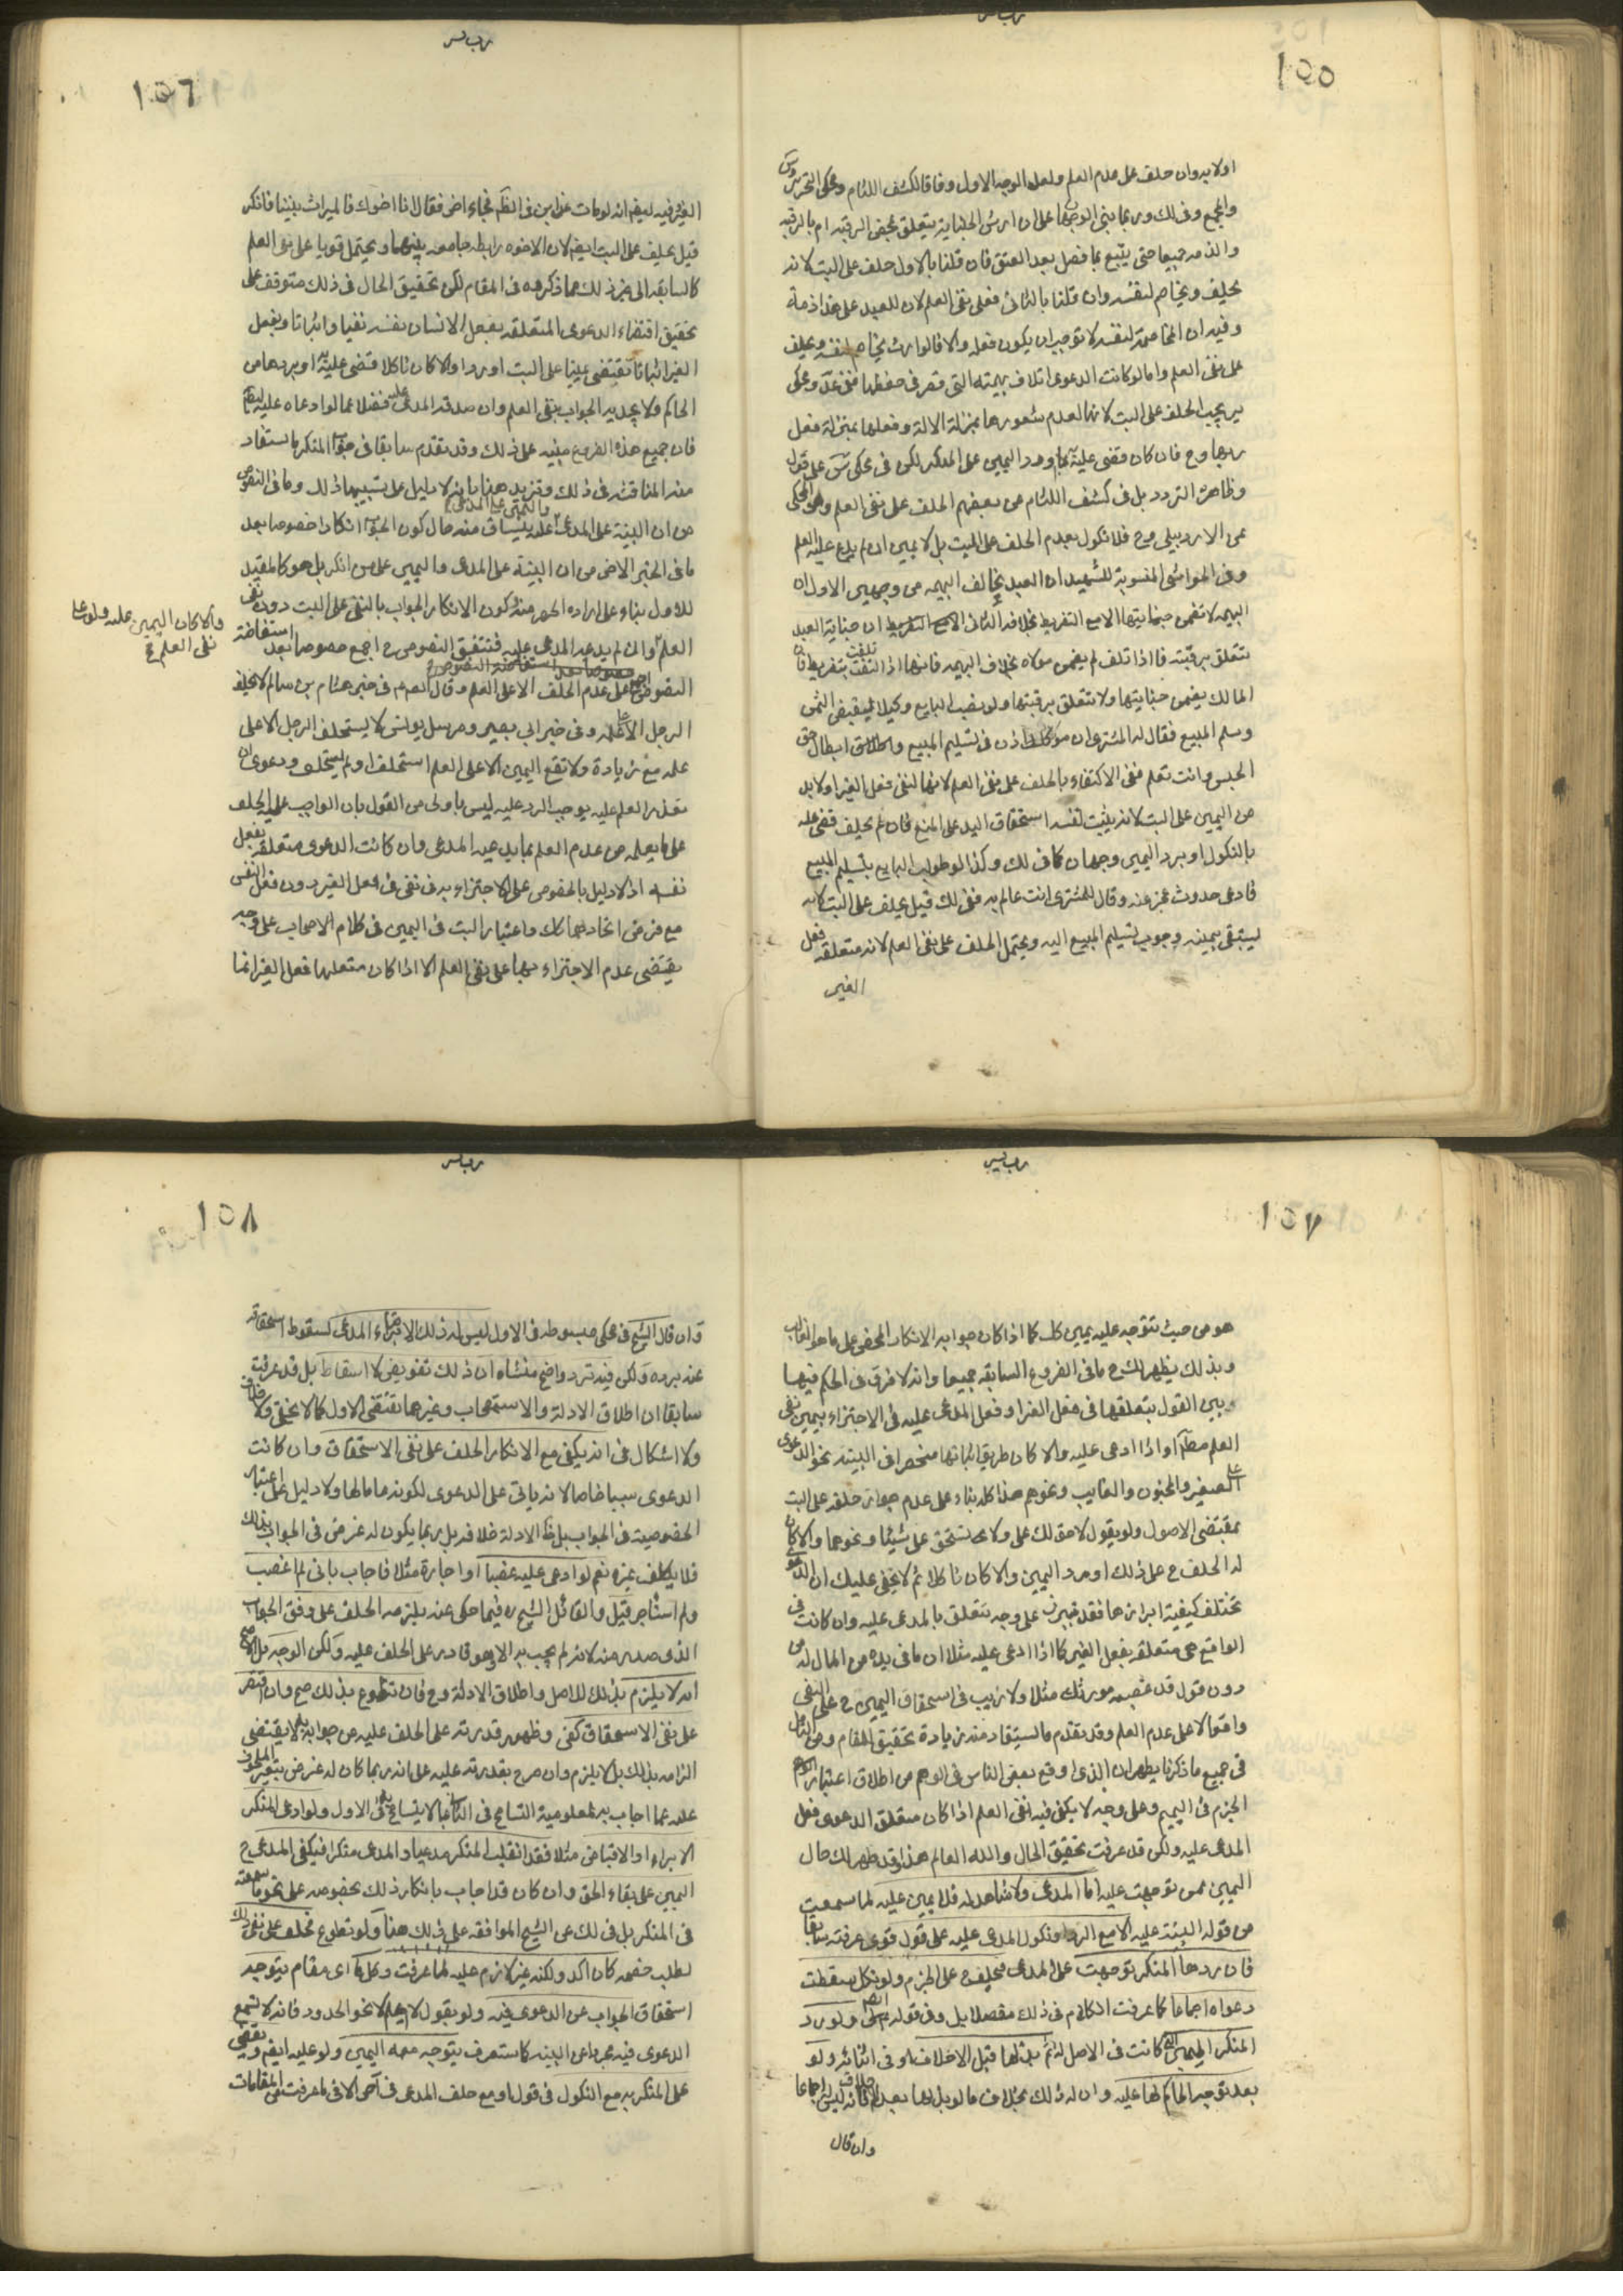 ١٥٥
اولا يد وان حلف على عدم العلم ولعل الوجه الاول وفاقا لكشف اللثام ومحكى التحرير وس
وا لجميع وفى لك وربما بنى الوجهان على ان ارش الجناية يتعلق بمحض الرقبة ام بالرقبة
والذمه جميعا حتى يتبع بما فضل بعد العتق فان قلنا بالاول حلف على البت لانه
يحلف ويخاصم لنفسه وان قلنا بالثانى فعلى نفى العلم لان للعبد على هذا ذمة
وفيه ان المخاصمة لنفسه لا توجب ان يكون فعله والا فالوارث يخاصم لنفسه ويحلف
على نفى العلم واما لو كانت الدعوى اتلاف بهيمته التى قصر فى حفظها ففى عد ومحكى
ير يجب الحلف على البت لانها لعدم شعورها بمنزلة الالة وفعلها بمنزلة فعل
ربها وح فان كان قضى عليه ورد اليمين على المنكر لكن فى محكى س على قول
وظاهره التردد بل فى كشف اللثام عن بعضهم الحلف على نفى العلم وهو المحكى
عن الاردبيلى وح فلا نكول بعدم الحلف على البت بل لا يمين ان لم يدع عليه العلم
وفى الحواشى المنسوبة للشهيد ان العبد يخالف البهيمه من وجهين الاول ان
البهيمه لا تضمن جنايتها الا مع التفريط بخلافه الثانى ان جناية العبد
تتعلق برقبته فاذا تلف لم يضمن مولاه بخلاف البهيمه فانها اذا تلفت بتفريط فان
المالك يضمن جنايتها ولا تتعلق برقبتها ولو نصب البايع وكيلا ليقبض الثمن
وسلم المبيع فقال له المشترى ان موكلك اذن فى تسليم المبيع وابطال حق
الحبس وانت تعلم ففى الاكتفاء بالحلف على نفى العلم لانها لنفى فعل الغير اولا بد
من اليمين على البت لانه يثبت لنفسه استحقاق اليد على المبيع فان لم يحلف قضى عليه
بالنكول او برد اليمين وجهان كما فى لك وكذا لو طولب البايع بتسليم المبيع
فادعى حدوث عجز عنه وقال للمشترى انت عالم به ففى لك قيل يحلف على البت لانه
يستبقى بيمينه وجوب تسليم المبيع اليه ويحتمل الحلف على نفى العلم لانه متعلقه فعل
الغير
١٥٦
الغير وفيه ايضا انه لو مات عن ابن فى الظ فجاء اخر فقال انا اخوك فالميراث بيننا فانكر
قيل يحلف على البت ايضا لان الاخوه رابطه جامعه بينهما ويحتمل قويا على نفى العلم
كالسابقه الى غير ذلك مما ذكروه فى المقام لكن تحقيق الحال فى ذلك متوقف على
تحقيق اقتضاء الدعوى المتعلقه بفعل الانسان نفسه نفيا واثباتا وبفعل
الغير اثباتا تقتضى يمينا على البت او ردا والا كان ناكلا قضى عليه به او يردها من
الحاكم ولا يجديه الجواب بنفى العلم وان صدقه المدعى عليه فضلا عما لو ادعاه عليه ايضا
فان جميع هذه الفروع مبنيه على ذلك وقد تقدم سابقا فى جواب المنكر ما يستفاد
منه المناقشه فى ذلك ونزيد هنا بانه لا دليل على تسبيبها ذلك وما فى النصوص
من ان البينة على المدعى واليمين على المدعى عليه ينساق منه حال كون الجواب انكارا خصوصا بعد
ما فى الخبر الاخر من ان البينة على المدعى واليمين على من انكر بل هو كالمقيد
للاول بناء على اراده الحصر منه كون الانكار الجواب بالنفى على البت دون نفى
العلم والا كان اليمين عليه ولو على نفى العلم ح
وان لم يدعه المدعى عليه فتتفق النصوص ح اجمع خصوصا بعد استفاضة
النصوص على عدم الحلف الا على العلم وقال الصم فى خبر هشام بن سالم لا يحلف
الرجل الا على علمه وفى خبر ابى بصير ومرسل يونس لا يستحلف الرجل الا على
علمه مع زيادة ولا تقع اليمين الا على العلم استحلف او لم يستحلف ودعوى ان
تعذر العلم عليه يوجب الرد عليه ليس باولى من القول بان الواجب عليه الحلف
على ما يعلمه من عدم العلم بما يدعيه المدعى وان كانت الدعوى متعلقه بفعل
نفسه اذ لا دليل بالخصوص على الاجتزاء به فى نفى فعل الغير دون فعل النفس
مع فرض اتحاد المدارك واعتبار البت فى اليمين فى كلام الاصحاب على وجه
يقتضى عدم الاجتزاء بها على نفى العلم الا اذا كان متعلقها فعل الغير انما
١٥٧
هو من حيث تتوجه عليه يمين كك كما اذا كان جوابه الانكار المحض على ما هو الغالب
وبذلك يظهر لك ح ما فى الفروع السابقه جميعا وانه لا فرق فى الحكم فيها
وبين القول بتعلقها فى فعل الغير او فعل المدعى عليه فى الاجتزاء بيمين نفى
العلم مطلقا او اذا ادعى عليه والا كان طريق اثباتها منحصرا فى البينه نحو الدعوى
على الصغير والمجنون والغايب ونحوهم هذا كله بناء على عدم جواز حلفه على البت
بمقتضى الاصول ولو يقول لا حق لك على ولا تستحق على شيئا ونحوهما والا كان
له الحلف ح على ذلك او رد اليمين والا كان ناكلا ثم لا يخفى عليك ان الدعوى
تختلف كيفية ابرازها فقد تبرز على وجه يتعلق بالمدعى عليه وان كانت فى
الواقع هى متعلقه بفعل الغير كما اذا ادعى عليه مثلا ان ما فى يده من المال له من
دون قول قد غصبه مورثك مثلا ولا ريب فى استحقاق اليمين ح على النفى
واقعا لا على عدم العلم وقد تقدم ما يستفاد منه زيادة تحقيق للمقام ومن التامل
فى جميع ما ذكرنا يظهر ان الذى اوقع بعض الناس فى الوهم من اطلاق اعتبار
الجزم فى اليمين وعلى وجه لا يكفى فيه نفى العلم اذا كان متعلق الدعوى فعل
المدعى عليه ولكن قد عرفت تحقيق الحال والله العالم هذا وقد ظهر لك حال
اليمين ممن توجهت عليه اما المدعى ولا شاهد له فلا يمين عليه لما سمعت
من قوله البينة عليه الا مع الرد او نكول المدعى عليه على قول قوى عرفته سابقا
فان ردها المنكر توجهت على المدعى فيحلف ح على الجزم ولو نكل سقطت
دعواه اجماعا كما عرفت الكلام فى ذلك مفصلا بل وفى قوله ولو رد
المنكر اليمين التى كانت فى الاصل له ثم بذلها قبل الاحلاف او فى اثنائه ولو
بعد توجيه الحاكم لها عليه وان له ذلك بخلاف ما لو بذلها بعد الاحلاف فانه ليس له اجماعا
وان قال
١٥٨
وان قال الشيخ فى محكى مبسوطه فى الاول ليس له ذلك الا برضاء المدعى لسقوط استحقاقه
عنه برده ولكن فيه تردد واضح منشاه ان ذلك تفويض لا اسقاط بل قد عرفت
سابقا ان اطلاق الادلة والاستصحاب وغيرهما يقتضى الاول كما لا يخفى ولا خلاف
ولا اشكال فى انه يكفى مع الانكار الحلف على نفى الاستحقاق وان كانت
الدعوى سببا خاصا لانه ياتى على الدعوى لكونه عاما لها ولا دليل على اعتبار
الخصوصية فى الجواب بل ظ الادلة خلافه بل ربما يكون له غرض فى الجواب بذلك
فلا يكلف غيره نعم لو ادعى عليه غصبا او اجارة مثلا فاجاب بانى لم اغصب
ولم استاجر قيل والقائل الشيخ ره فيما حكى عنه يلزمه الحلف على وفق الجواب
الذى صدر منه لانه لم يجب به الا وهو قادر على الحلف عليه ولكن الوجه بل الاصح
انه لا يلزم بذلك للاصل واطلاق الادلة وح فان تطوع بذلك صح وان اقتصر
على نفى الاستحقاق كفى وظهور قدرته على الحلف عليه من جوابه به لا يقتضى
الزامه بذلك بل لا يلزم وان صرح بقدرته عليه على انه ربما كان له غرض بتغير المحلوف
عليه عما اجاب به لمعلومية التسامح فى الثانى بما لا يتسامح به فى الاول ولو ادعى المنكر
الابراء او الاقباض مثلا فقد انقلب المنكر مدعيا والمدعى منكرا فيكفى المدعى ح
اليمين على بقاء الحق وان كان قد اجاب بانكار ذلك بخصوصه على نحو ما سمعته
فى المنكر بل فى لك عن الشيخ الموافقه على ذلك هنا ولو تطوع فحلف على نفى ذلك
لطلب خصمه كان اكد ولكنه غير لازم عليه لما عرفت وكل ما اى مقام يتوجه
استحقاق الجواب عن الدعوى فيه ولو يقول لا اعلم لا نحو الحدود فانه لا تسمع
الدعوى فيه مجردا عن البينه كما ستعرف يتوجه معه اليمين ولو عليه ايضا ويقضى
على المنكر به مع النكول فى قول او مع حلف المدعى فى اخر الا فى ما عرفت من المقامات